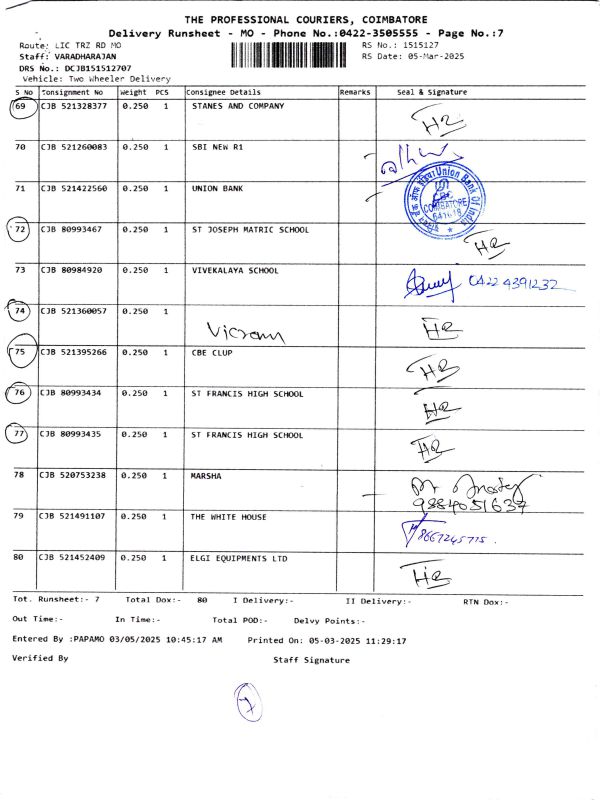 THE PROFESSIONAL COURIERS, COIMBATORE
Delivery Runsheet - MO - Phone No.:0422-3505555 - Page No.:7
Route: LIC TRZ RD MO RS No.: 1515127
Staff: VARADHARAJAN RS Date: 05-Mar-2025
DRS No.: DCJB151512707
Vehicle: Two Wheeler Delivery
S No Consignment No Weight PCS Consignee Details Remarks Seal & Signature
69 CJB 521328377 0.250 1 STANES AND COMPANY
70 CJB 521260083 0.250 1 SBI NEW R1
71 CJB 521422560 0.250 1 UNION BANK
Union Bank Of India
COIMBATORE
72 CJB 80993467 0.250 1 ST JOSEPH MATRIC SCHOOL
73 CJB 80984920 0.250 1 VIVEKALAYA SCHOOL 0422 4391232
74 CJB 521360057 0.250 1
Vicram
75 CJB 521395266 0.250 1 CBE CLUP
76 CJB 80993434 0.250 1 ST FRANCIS HIGH SCHOOL
77 CJB 80993435 0.250 1 ST FRANCIS HIGH SCHOOL
78 CJB 520753238 0.250 1 MARSHA
9884051637
79 CJB 521491107 0.250 1 THE WHITE HOUSE
8667245775.
80 CJB 521452409 0.250 1 ELGI EQUIPMENTS LTD
Tot. Runsheet:- 7 Total Dox:- 80 I Delivery:- II Delivery:- RTN Dox:-
Out Time:- In Time:- Total POD:- Delvy Points:-
Entered By :PAPAMO 03/05/2025 10:45:17 AM Printed On: 05-03-2025 11:29:17
Verified By Staff Signature
7